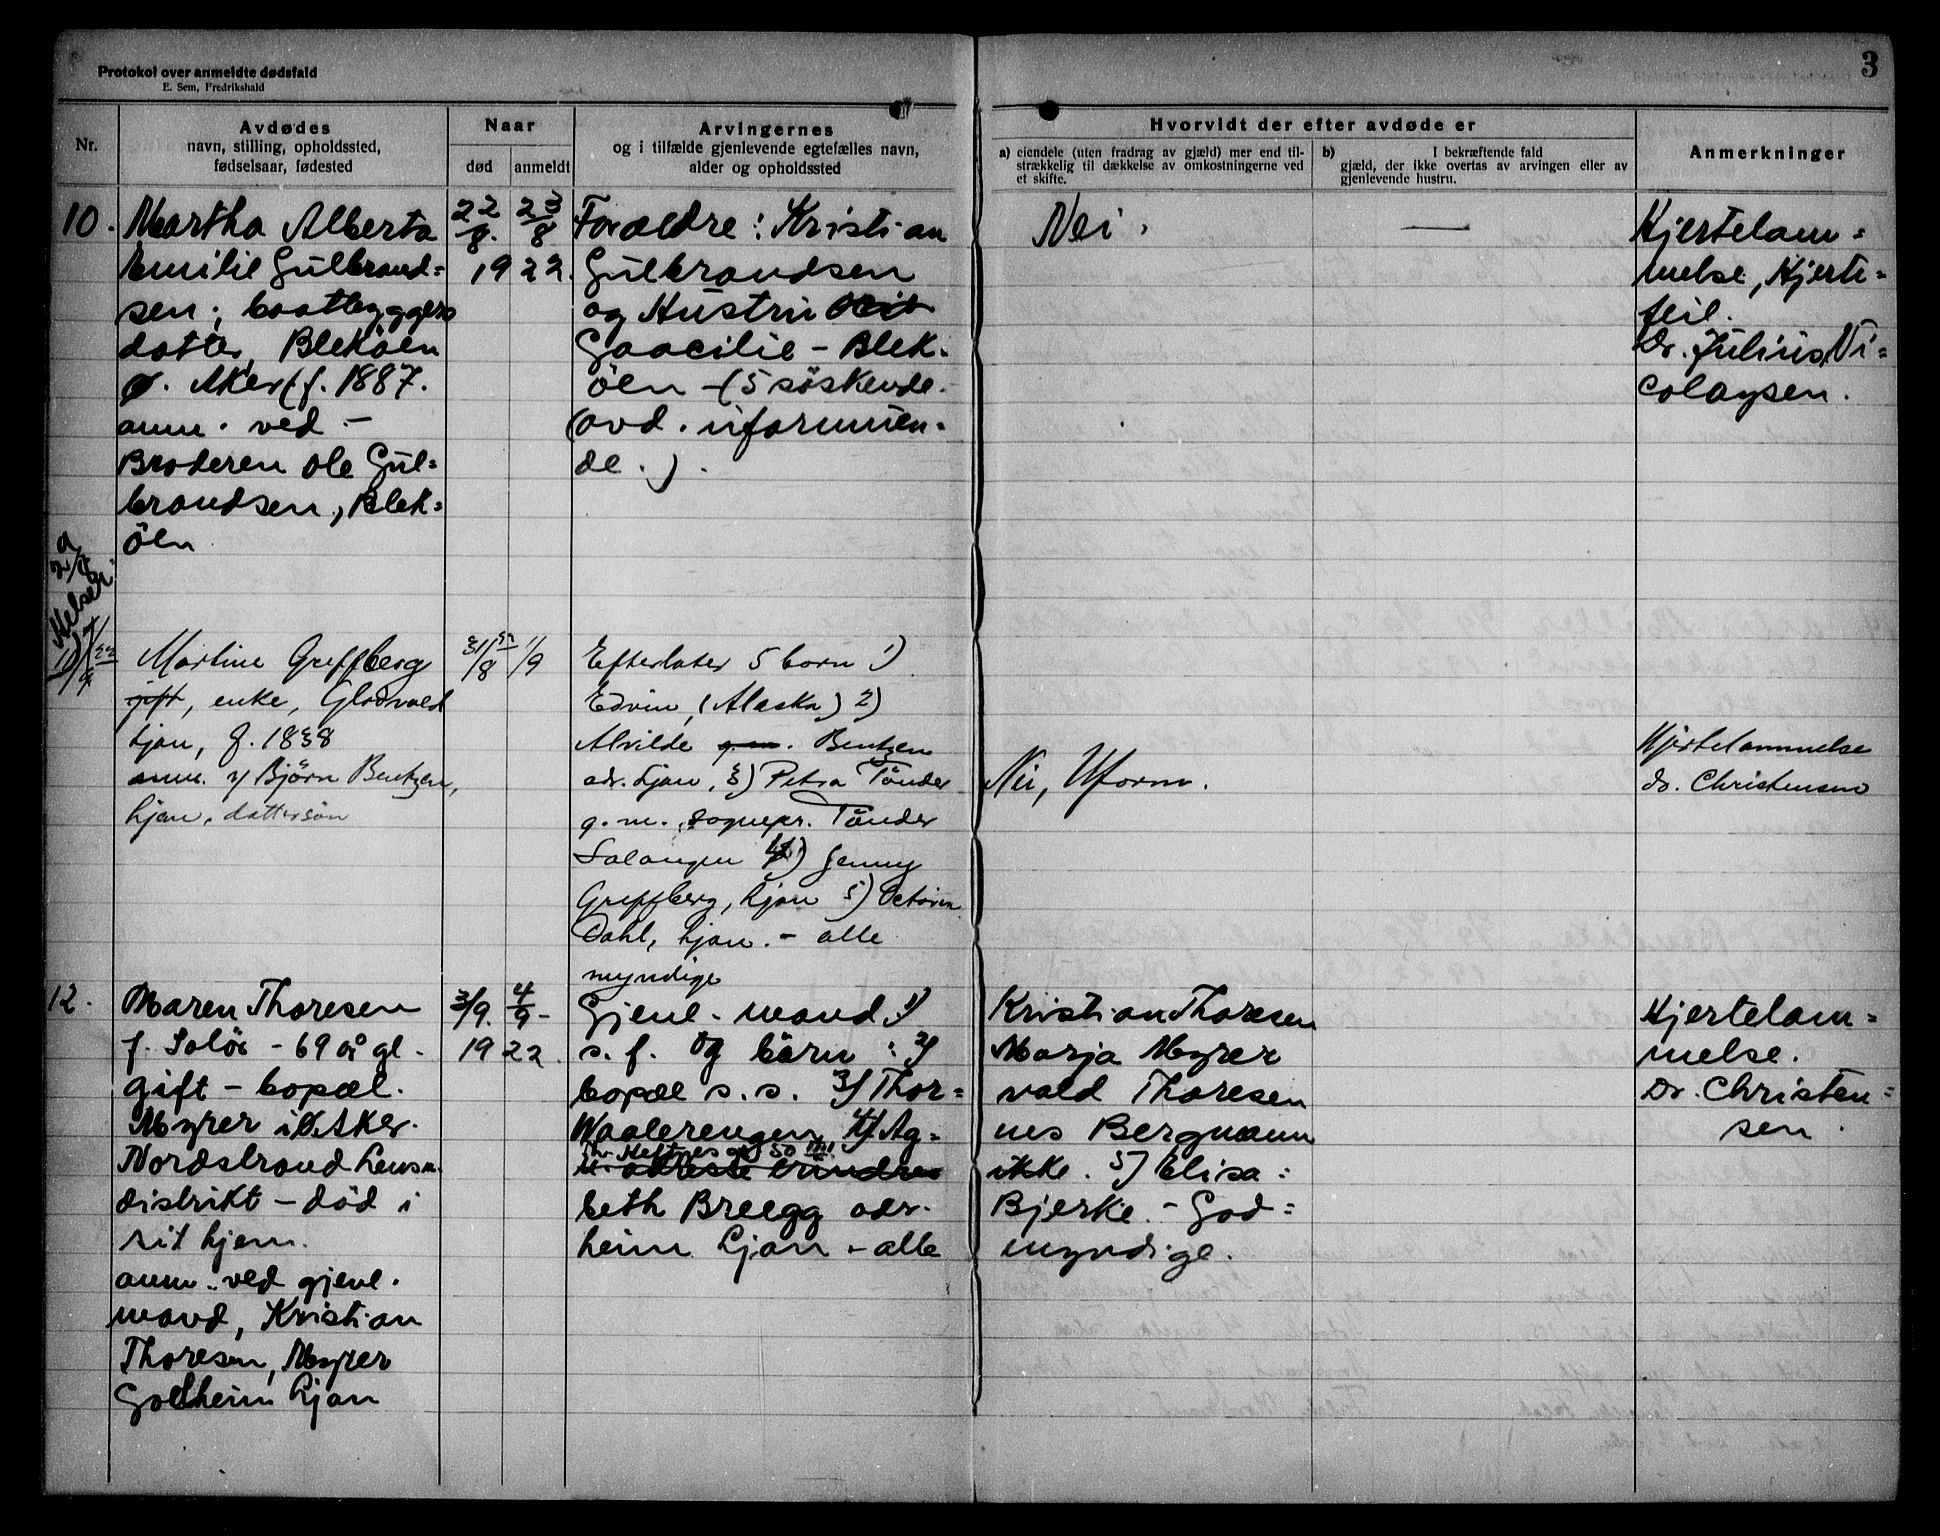 Protokol over anmeldte dødsfald
E. Sem, Fredrikshald
3
Nr.
Avdødes
navn, stilling, opholdssted,
fødselsaar, fødested
Naar
død
anmeldt
Arvingernes
og i tilfælde gjenlevende egtefælles navn,
alder og opholdssted
Hvorvidt der efter avdøde er
a) eiendele (uten fradrag av gjæld) mer end til-
strækkelig til dækkelse av omkostningerne ved
et skifte.
b) I bekræftende fald
gjæld, der ikke overtas av arvingen eller av
gjenlevende hustru.
Anmerkninger
10.
Martha Alberta
Emilie Gulbrand=
sen; baatbyggers
datter, Blekøen
Ø. Aker f. 1887.
anm. ved -
Broderen Ole Gul=
brandsen, Blek=
öen
22/8. 23/8
1922.
Forældre: Kristian
Gulbrandsen
og Hustru
Gaacilie - Blek-
öen - (5 söskende.
(avd. uformuen-
de.).
Nei.
—
Hjertelam=
melse, Hjerte=
feil.
Dr. Julius Ni=
colaysen.
Martine Greffberg
gift, enke, Gladvold
Ljan, f. 1838
anm. v/ Bjørn Bentzen,
Ljan, dattersön
31/8 22 1/9
Efterlater 5 barn 1)
Edvin, (Alaska) 2)
Alvilde g.m. Bentzen
adr. Ljan, 3) Petra Tönder
g.m. sognepr. Tönder
Salangen 4) Jenny
Greffberg, Ljan 5)
Dahl, Ljan. - alle
myndige
Nei, Uform.
Hjertelammelse
dr. Christensen
12.
Maren Thoresen
f. Solör - 69 år gl.
gift - bopæl.
Myrer i Ø. Aker.
Nordstrand Lensm.
distrikt - död i
sit hjem.
anm. ved gjenl.
mand, Kristian
Thoresen, Myrer
Godheim Ljan
3/9. 4/9-
1922.
Gjenl. mand 1) Kristian Thoresen
s. f. og börn: 2) Marja Myrer
bopæl s. s. 3) Thor= vald Thoresen
Waalerengen 4) Ag= nes Bergmann
Th. Heftyes g. 50 III
adresse erindres ikke. 5) Elisa=
beth Breegg adr. Bjerke. - God=
heim Ljan - alle myndige.
Hjertelam=
melse.
Dr. Christen=
sen.